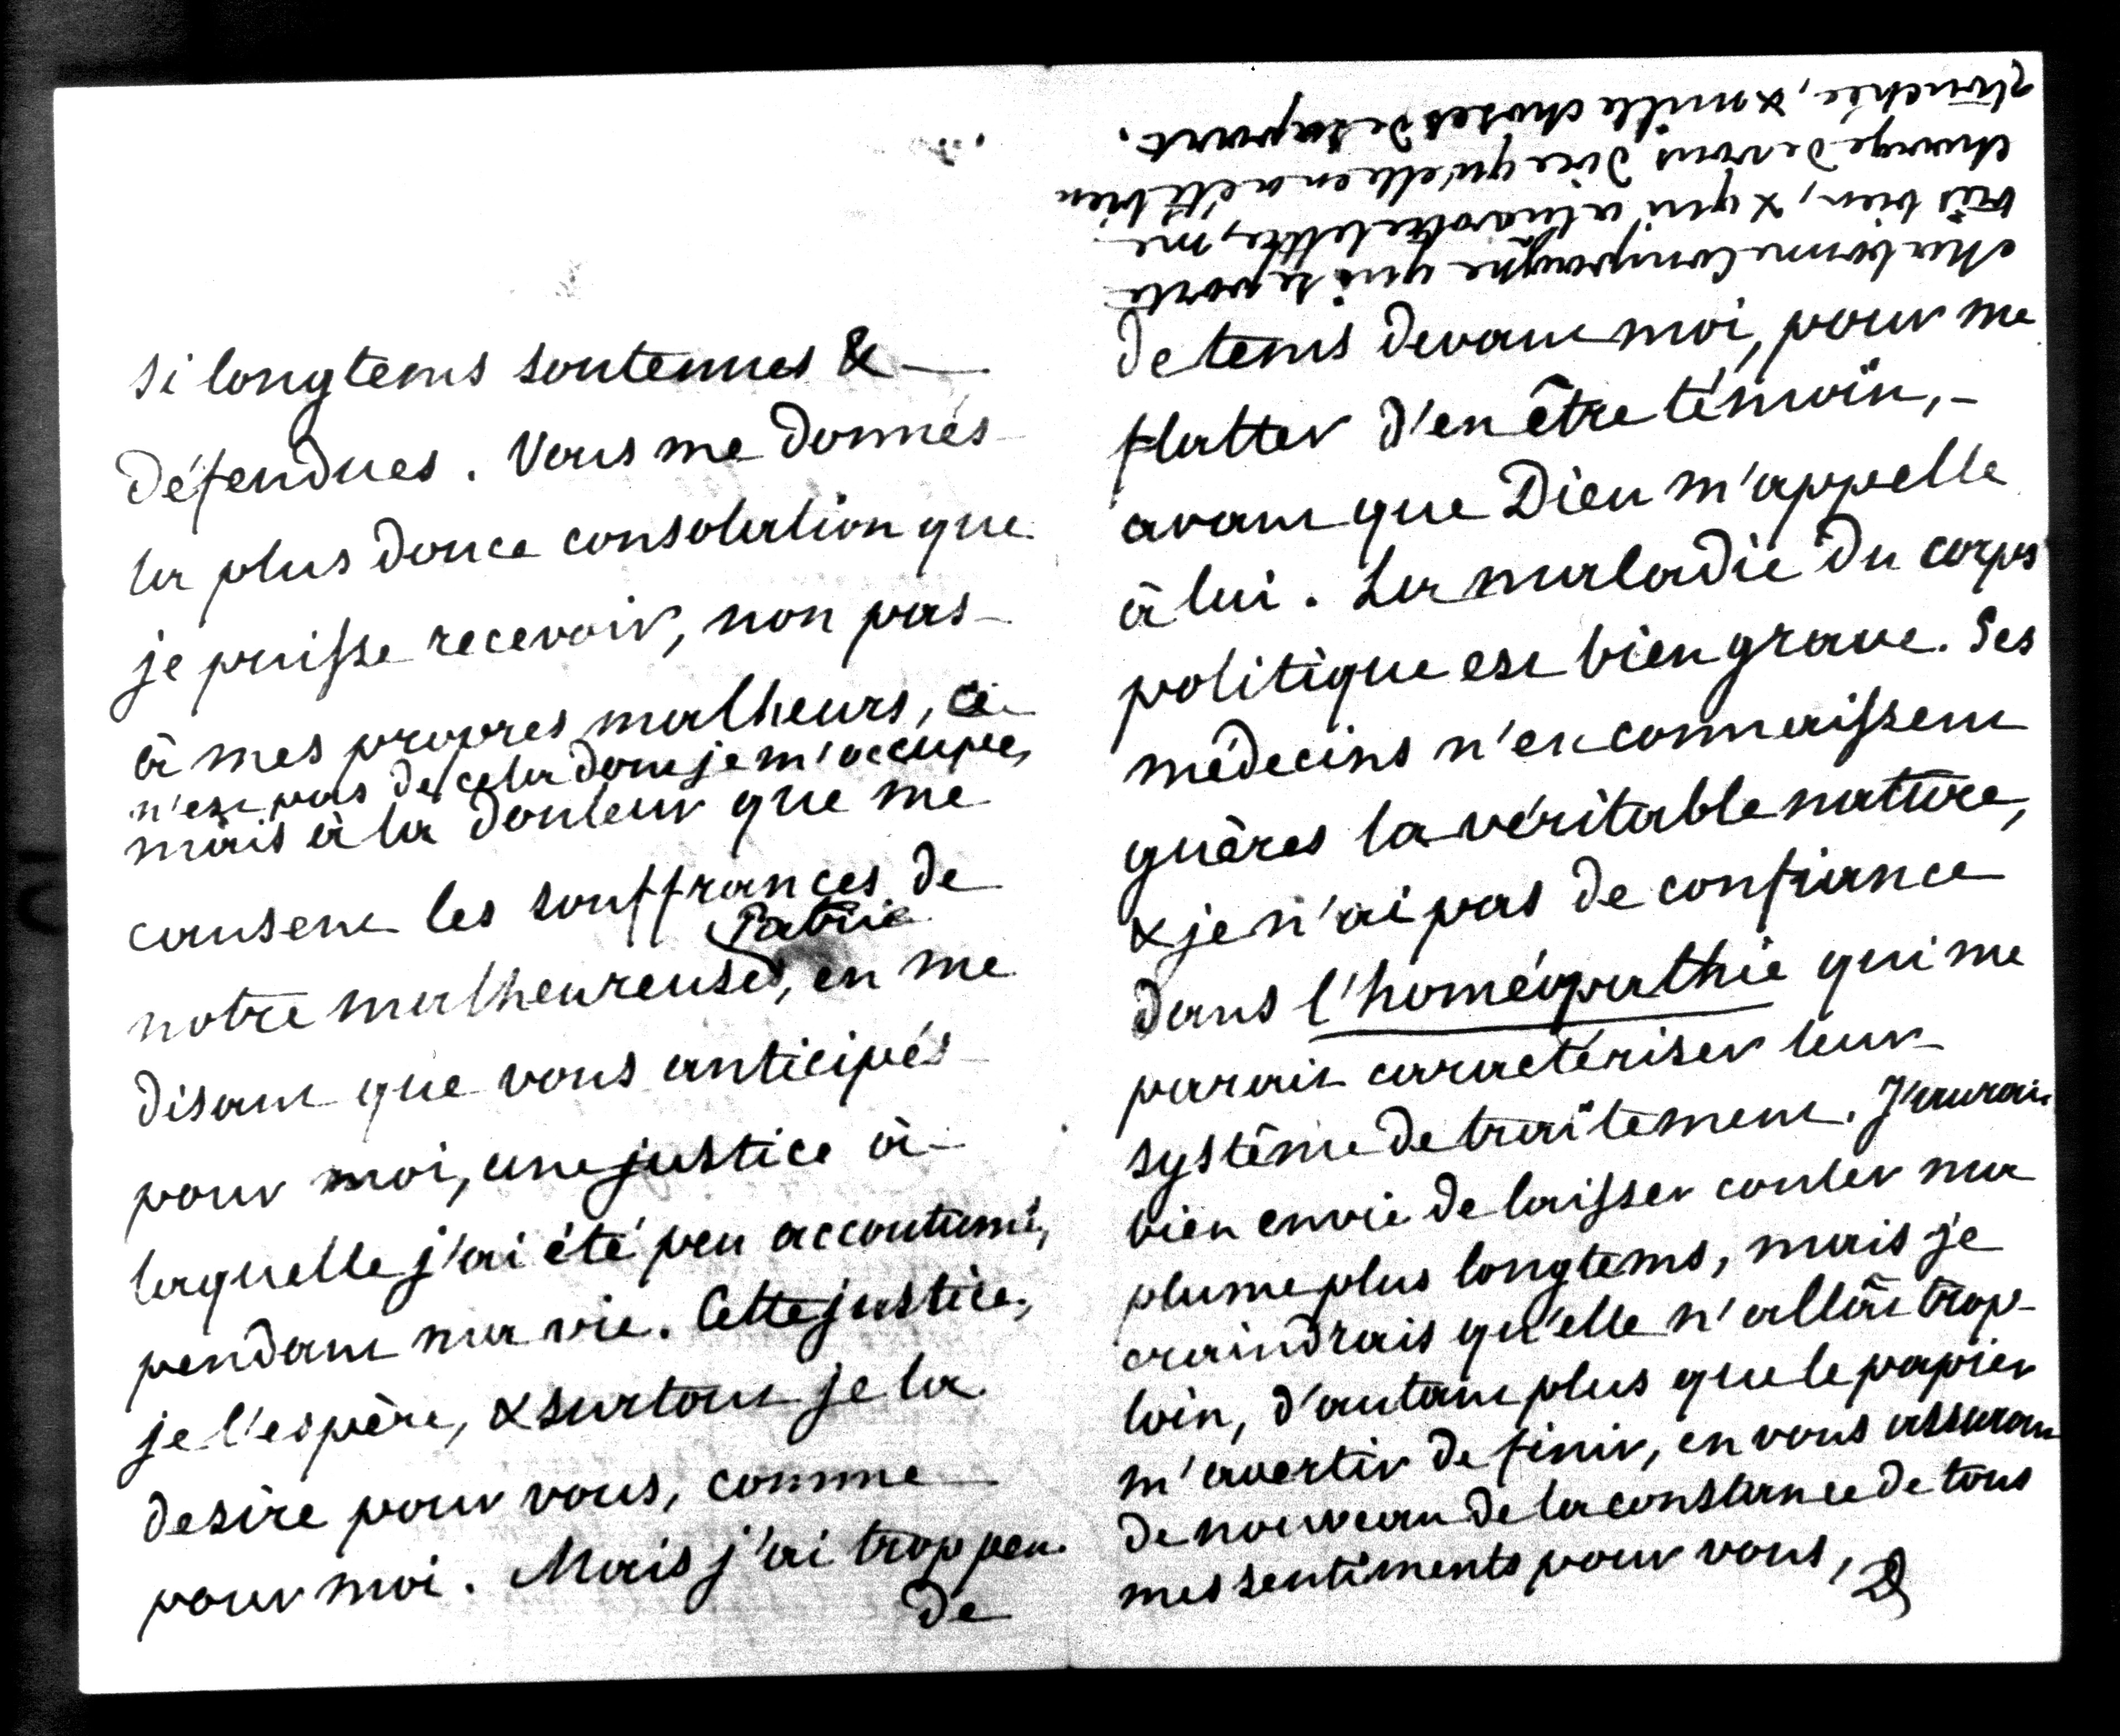 si longtems soutenues &
défendues. Vous me donnés
la plus douce consolation que
je puisse recevoir, non pas
à mes propres malheurs, ce
n'est pas de cela dont je m'occupe,
mais à la douleur que me
causent les souffrances de
Patrie
notre malheureuse, en me
disant que vous anticipés
pour moi, une justice à
laquelle j'ai été peu accoutumé,
pendant ma vie. Cette justice,
je l'espère, & surtout je la
desire pour vous, comme
pour moi. Mais j'ai trop peu
de
de tems devant moi, pour me
flatter d'en être témoin,
avant que Dieu m'appelle
à lui. La maladie du corps
politique est bien grave. Ses
médecins n'en connaissent
guères la véritable nature,
& je n'ai pas de confiance
dans l'homéopathie qui me
parait caractériser leur
système de traitement. J'aurais
bien envie de laisser couler ma
plume plus longtems, mais je
craindrais qu'elle n'allât trop
loin, d'autant plus que le papier
m'avertit de finir, en vous assurant
de nouveau de la constance de tous
mes sentiments pour vous,
Ma bonne Compagne qui se porte
très bien, & qui a lu votre lettre, me
charge de vous dire qu'elle en a été bien
touchée, & mille choses de sa part.